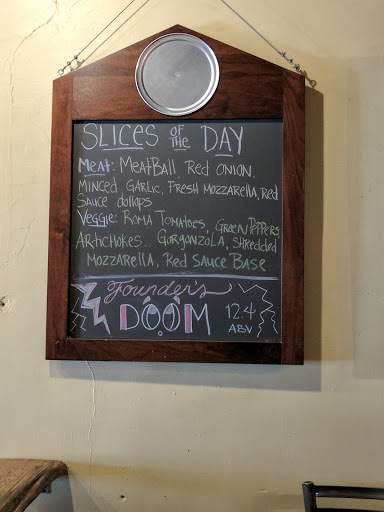 SLICES OF THE DAY
Meat: MeatBall, Red ONION,
MINCED GARLIC, FResH MOZZARELLA, RED
SAUCE dollops
Veggie: ROMA TOMATOES, GREEN PEPPERS
ARTICHOKES.. GORGONZOLA, SHREDDED
MOZZARELLA, RED SAUCE BASE
Founder's
DOOM 12.4
ABV